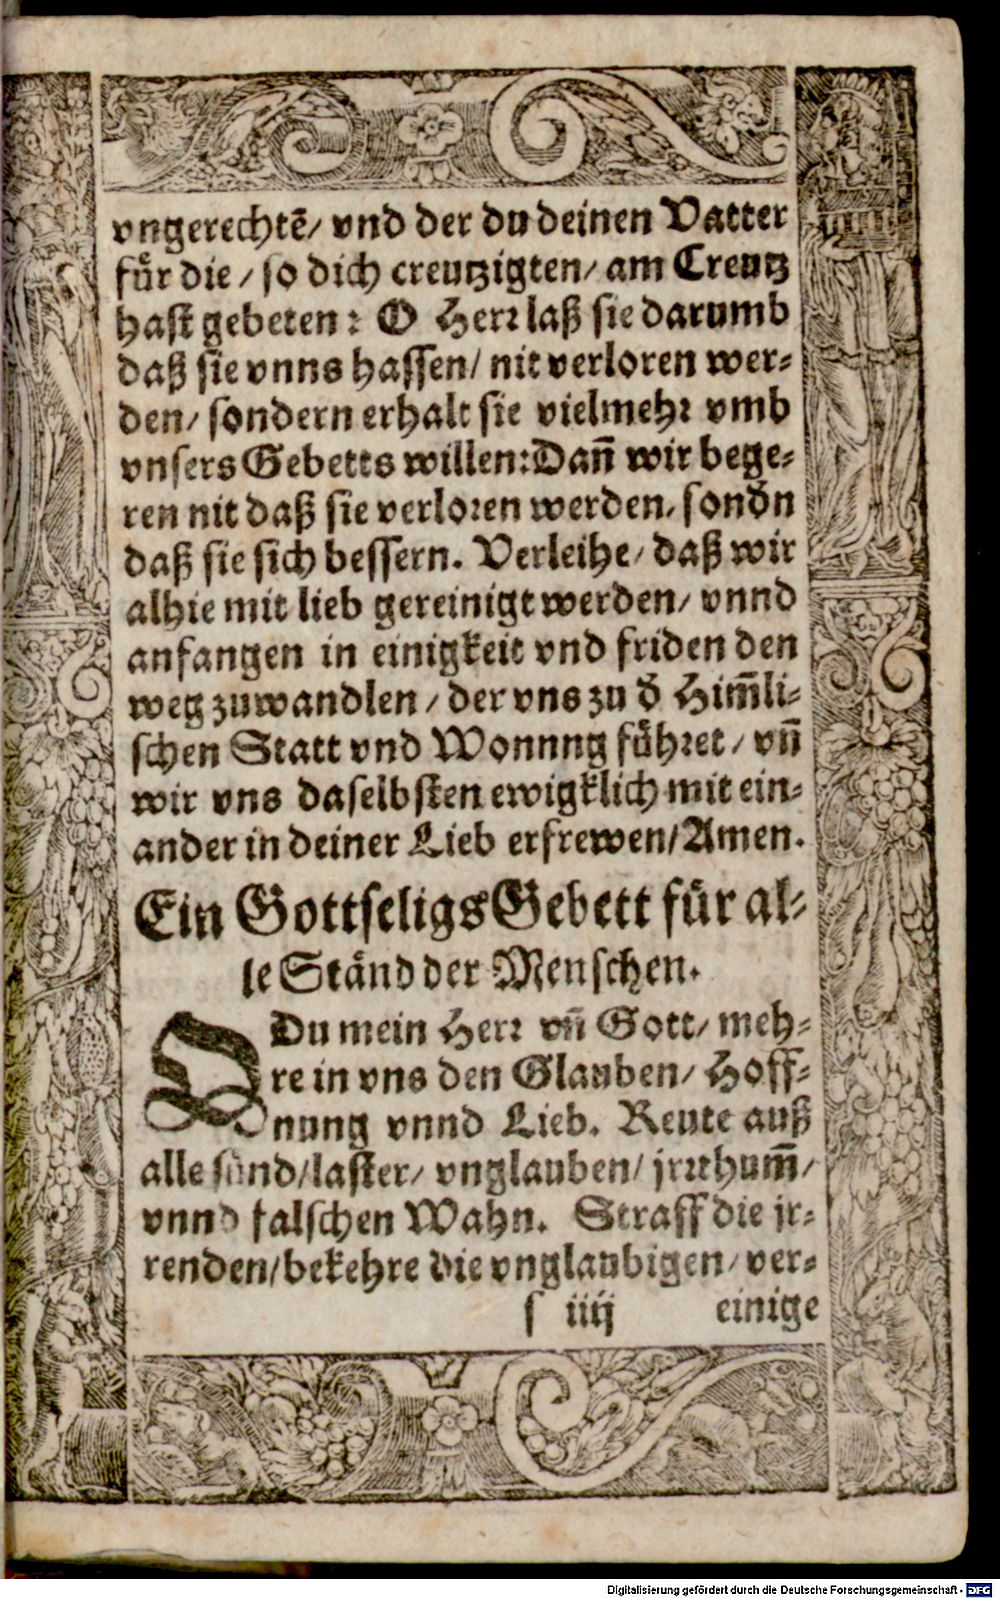 vngerechtē/ vnd der du deinen Vatter
fuͤr die / so dich creutzigten/ am Creutz
hast gebeten: O Herꝛ laß sie darumb
daß sie vnns hassen/ nit verloren wer⸗
den/ sondern erhalt sie vielmehꝛ vmb
vnsers Gebetts willen: Dañ wir bege⸗
ren nit daß sie verloꝛen werden, sondn̄
daß sie sich bessern. Verleihe/ daß wir
alhie mit lieb gereinigt werden/ vnnd
anfangen in einigkeit vnd friden den
weg zuwandlen / der vns zu d̄ Him̄li⸗
schen Statt vnd Wonnng fuͤhꝛet / vñ
wir vns daselbsten ewigklich mit ein⸗
ander in deiner Lieb erfrewen/ Amen.
Ein Gottseligs Gebett fuͤr al⸗
le Staͤnd der Menschen.
O Du mein Herꝛ vñ Gott/ meh⸗
re in vns den Glauben/ Hoff⸗
nung vnnd Lieb. Reute auß
alle suͤnd/ laster/ vnglauben/ jrꝛthum̄/
vnnd falschen Wahn. Straff die jr⸗
renden/ bekehre die vnglaubigen/ ver⸗
s iiij einige
Digitalisierung gefördert durch die Deutsche Forschungsgemeinschaft - DFG